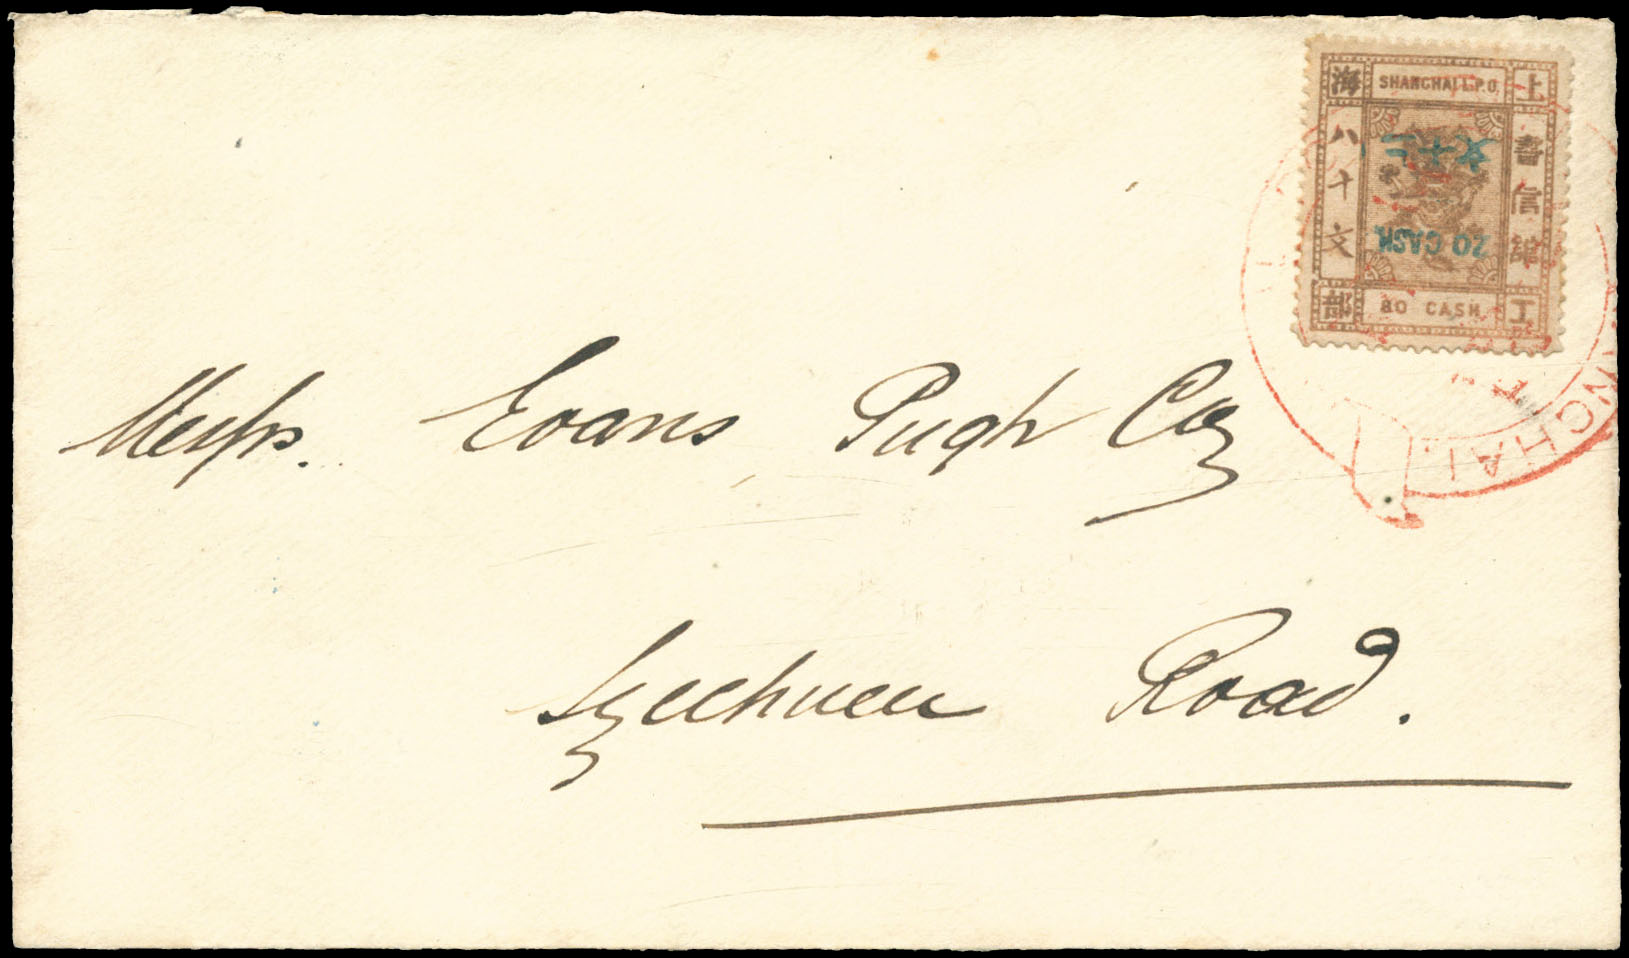 SHANGHAI L.P.O.
上海
書信館
八十文
工部
二十文
20 CASH.
80 CASH.
SHANGHAI.
Messrs. Evans Pugh Co
Szechuen Road.